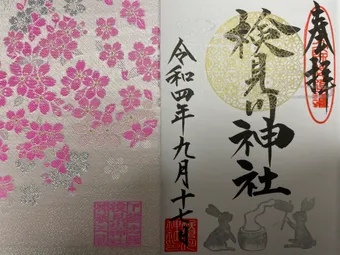 奉拝
検見川神社
令和四年九月十七日